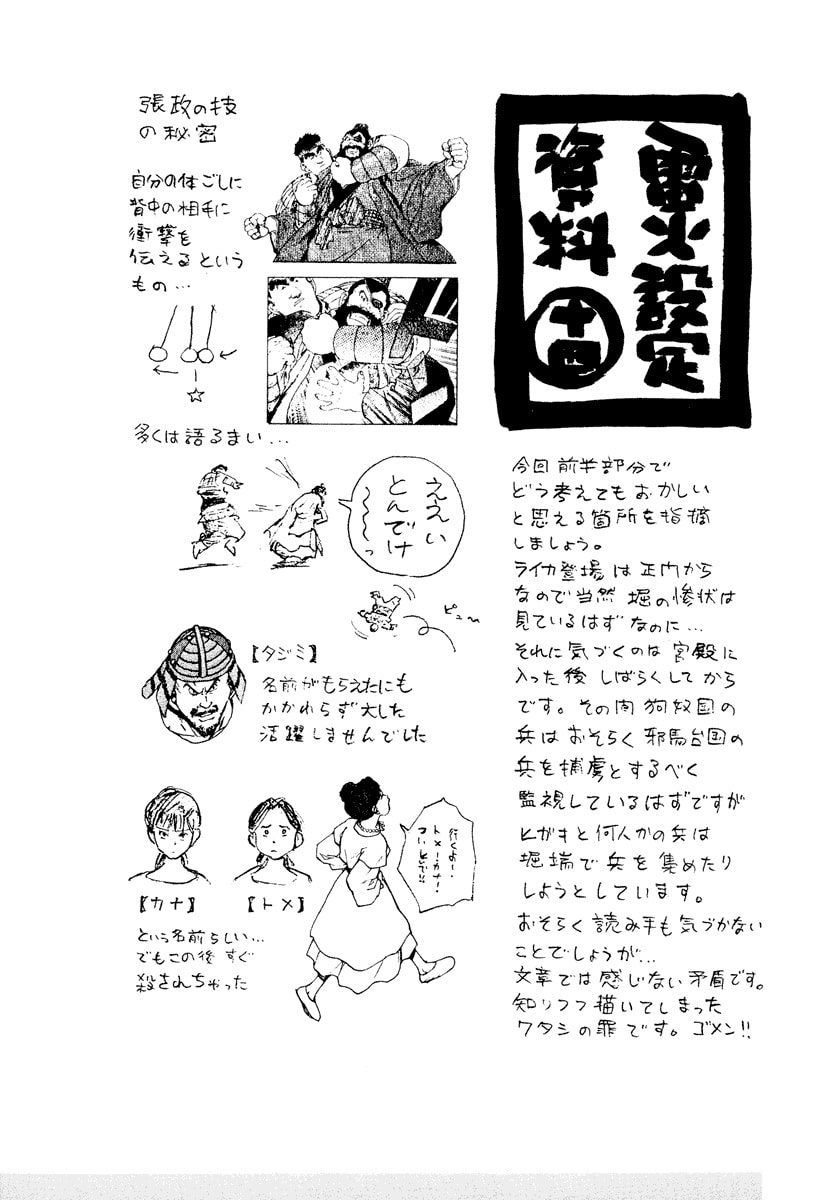 雷火設定
資料
十四
張政の技
の秘密
自分の体ごしに
背中の相手に
衝撃を
伝えるという
もの…
☆
多くは語るまい…
ええい
とんでけ
〜〜〜っ
ピュ〜
【タジミ】
名前がもらえたにも
かかわらず大した
活躍しませんでした
行くよ〜、
トメ!カナ!
ついといで!!
【カナ】
【トメ】
という名前らしい…
でもこの後すぐ
殺されちゃった
今回前半部分で
どう考えてもおかしい
と思える箇所を指摘
しましょう。
ライカ登場は正門から
なので当然 堀の惨状は
見ているはずなのに…
それに気づくのは宮殿に
入った後しばらくしてから
です。その内狗奴国の
兵はおそらく邪馬台国の
兵を捕虜とするべく
監視しているはずですが
ヒガキと何人かの兵は
堀端で兵を集めたり
しようとしています。
おそらく読み手も気づかない
ことでしょうが…
文章では感じない矛盾です。
知りつつ描いてしまった
ワタシの罪です。ゴメン!!